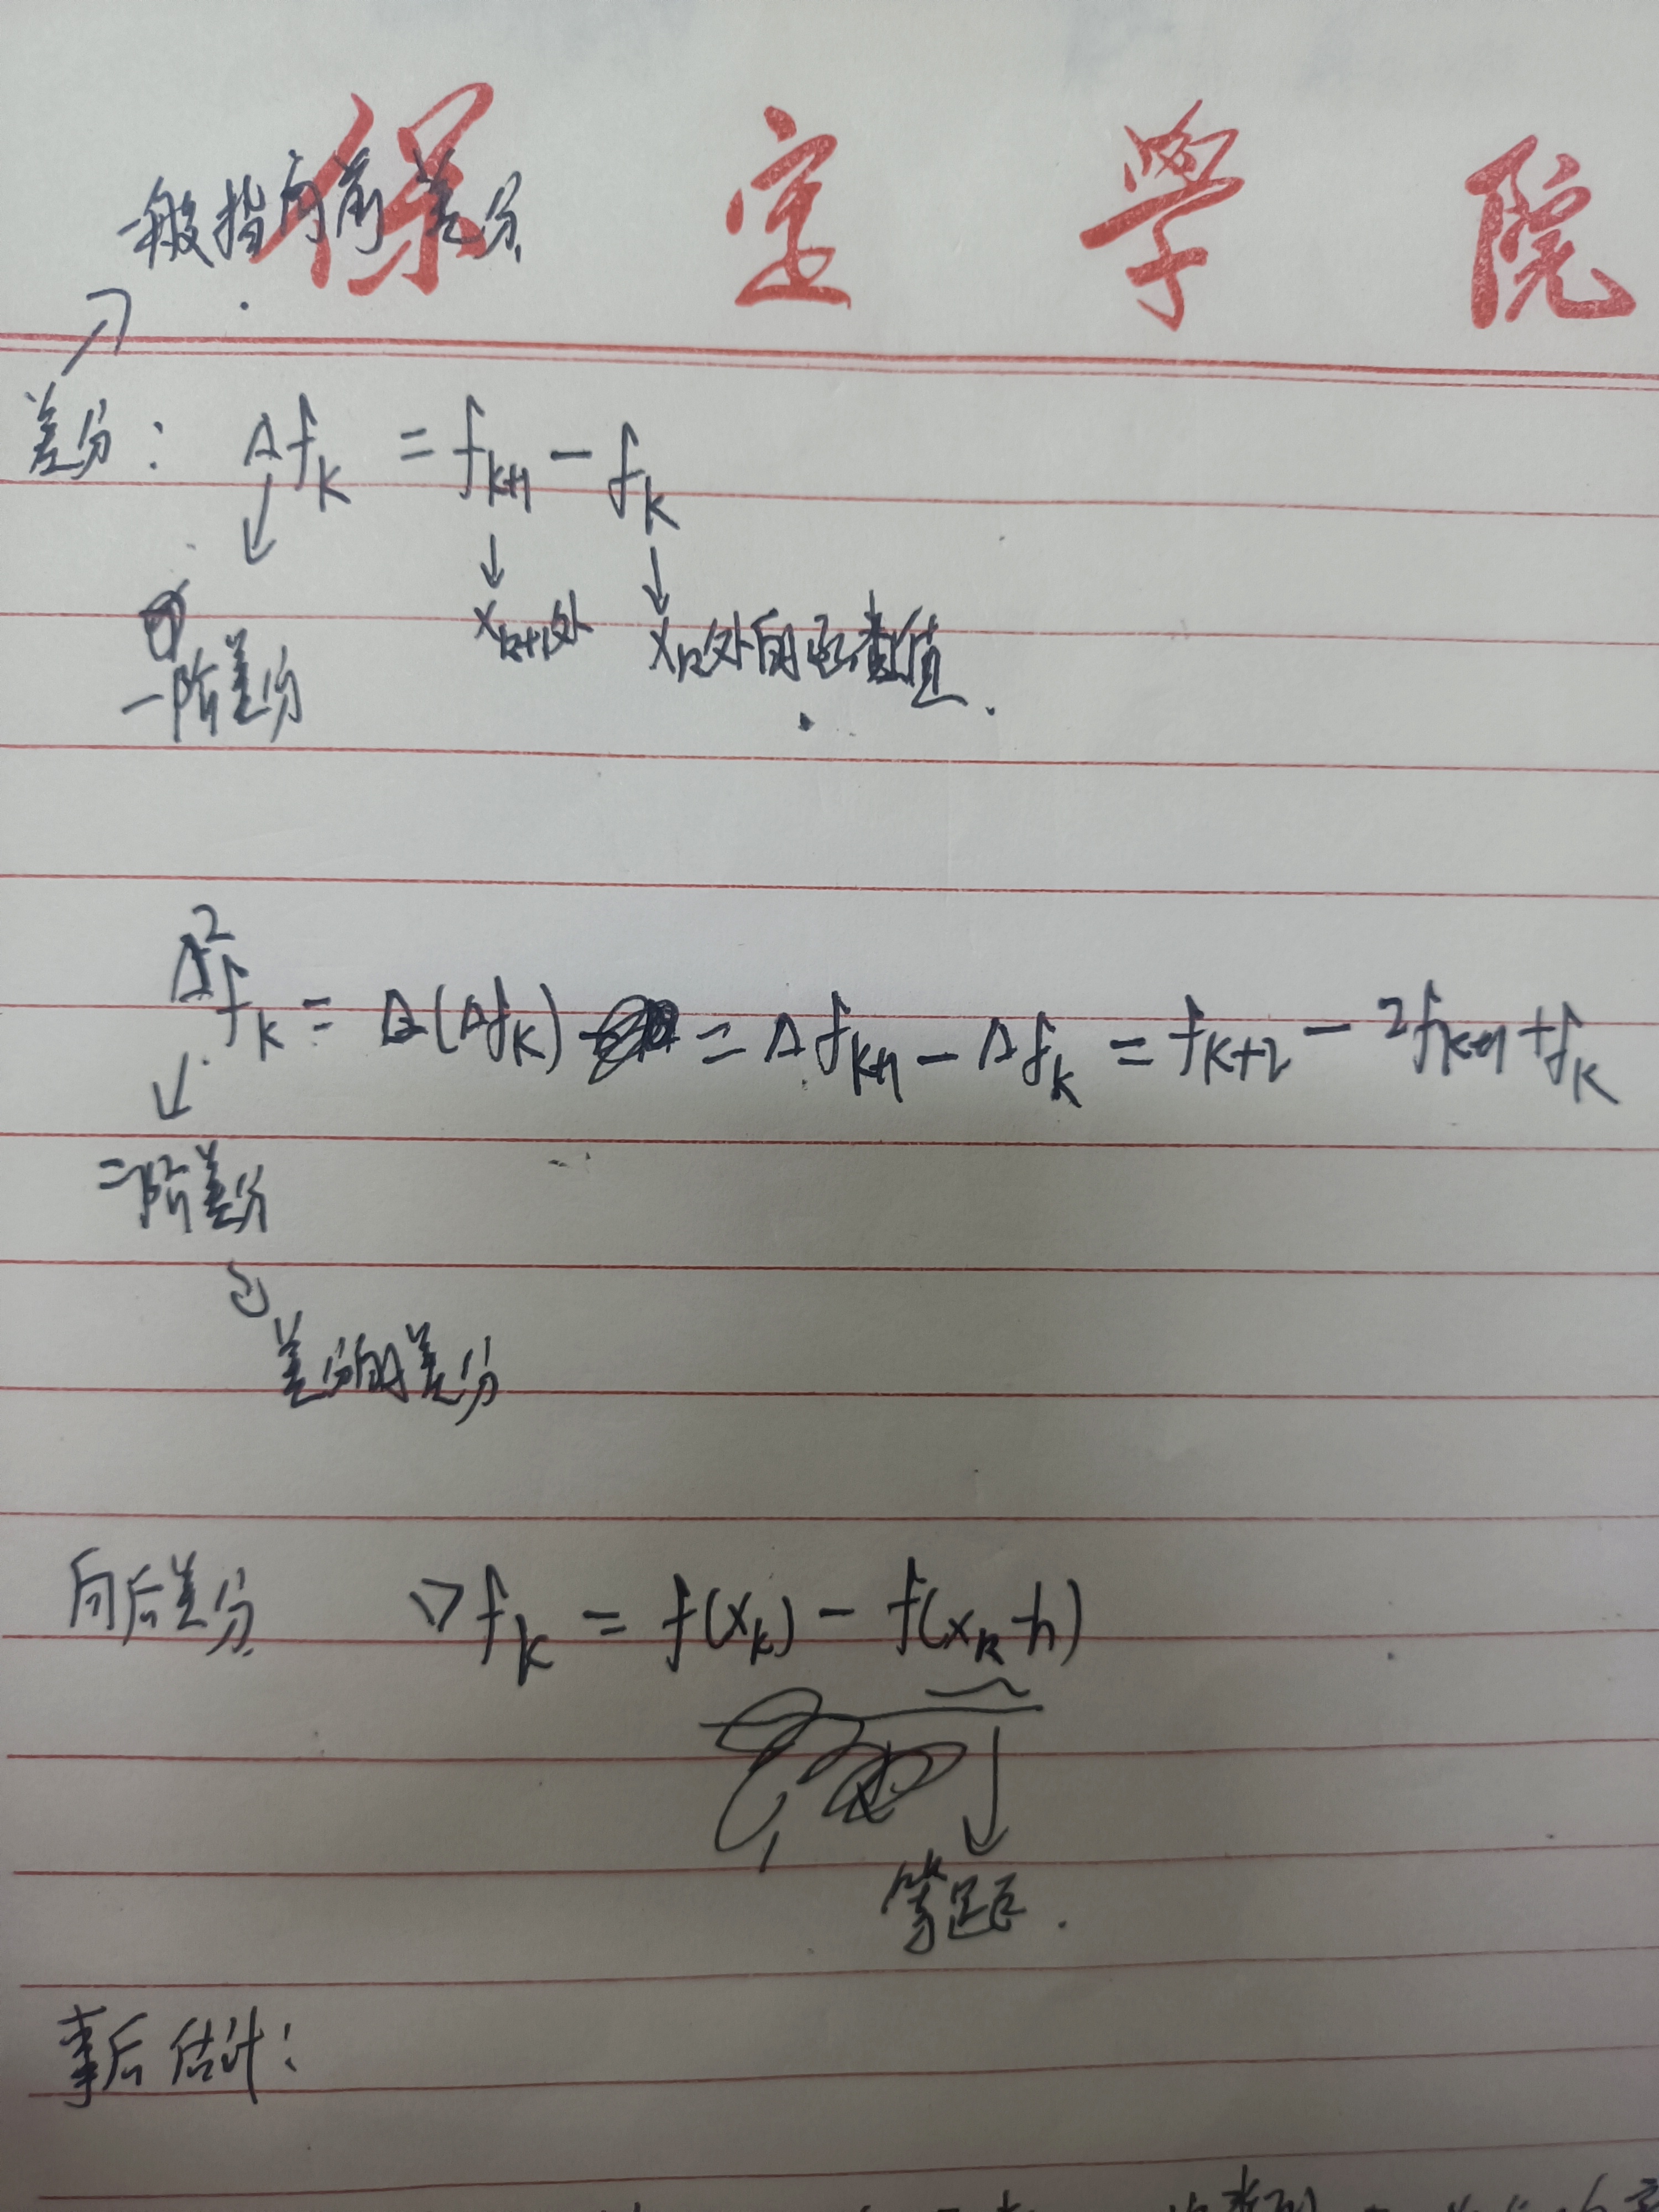 保定學院
一般指向前差分
差分: Δf_k = f_{k+1} - f_k
x_{k+1}处 x_k处的函数值.
一阶差分
Δ²f_k = Δ(Δf_k) = Δf_{k+1} - Δf_k = f_{k+2} - 2f_{k+1} + f_k
二阶差分
差分的差分
向后差分 ∇f_k = f(x_k) - f(x_k-h)
等距.
事后估计: